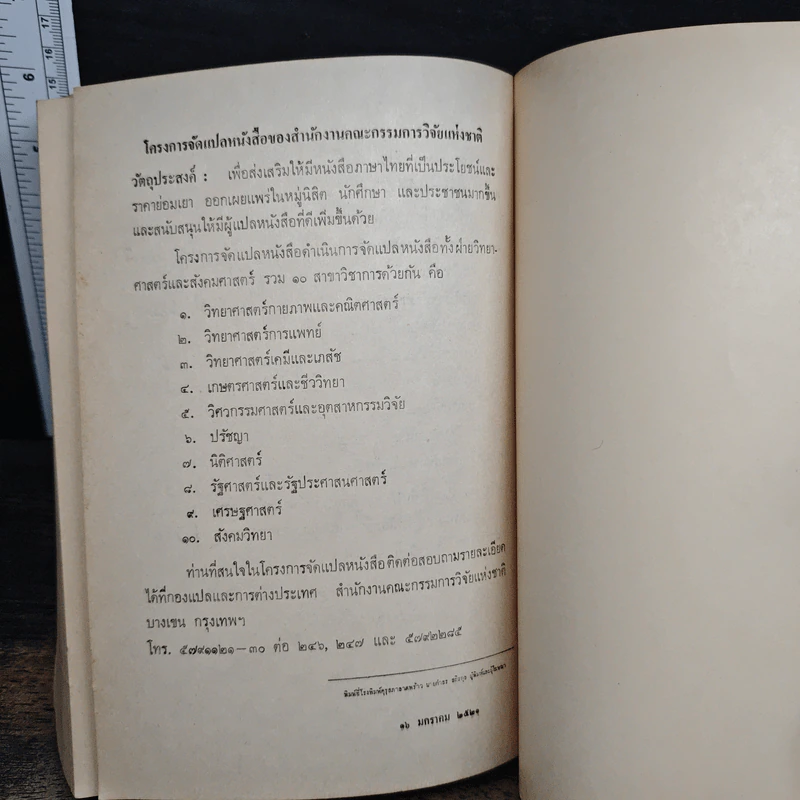 โครงการจัดแปลหนังสือของสำนักงานคณะกรรมการวิจัยแห่งชาติ
วัตถุประสงค์ : เพื่อส่งเสริมให้มีหนังสือภาษาไทยที่เป็นประโยชน์และ
ราคาย่อมเยา ออกเผยแพร่ในหมู่นิสิต นักศึกษา และประชาชนมากขึ้น
และสนับสนุนให้มีผู้แปลหนังสือที่ดีเพิ่มขึ้นด้วย
โครงการจัดแปลหนังสือดำเนินการจัดแปลหนังสือทั้งฝ่ายวิทยา-
ศาสตร์และสังคมศาสตร์ รวม ๑๐ สาขาวิชาการด้วยกัน คือ
๑. วิทยาศาสตร์กายภาพและคณิตศาสตร์
๒. วิทยาศาสตร์การแพทย์
๓. วิทยาศาสตร์เคมีและเภสัช
๔. เกษตรศาสตร์และชีววิทยา
๕. วิศวกรรมศาสตร์และอุตสาหกรรมวิจัย
๖. ปรัชญา
๗. นิติศาสตร์
๘. รัฐศาสตร์และรัฐประศาสนศาสตร์
๙. เศรษฐศาสตร์
๑๐. สังคมวิทยา
ท่านที่สนใจในโครงการจัดแปลหนังสือ ติดต่อสอบถามรายละเอียด
ได้ที่กองแปลและการต่างประเทศ สำนักงานคณะกรรมการวิจัยแห่งชาติ
บางเขน กรุงเทพฯ
โทร. ๕๗๙๑๑๒๑–๓๐ ต่อ ๒๔๖, ๒๔๗ และ ๕๗๙๒๒๘๕
พิมพ์ที่โรงพิมพ์คุรุสภาลาดพร้าว
๑๖ มกราคม ๒๕๒๑
6
17
16
15
5